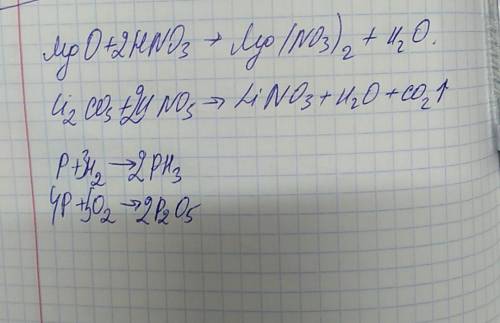 MgO+2HNO3 → Mg(NO3)2 + H2O.
Li2CO3+2HNO3 → LiNO3+H2O+CO2↑
P+3H2 → 2PH3
4P+5O2 → 2P2O5